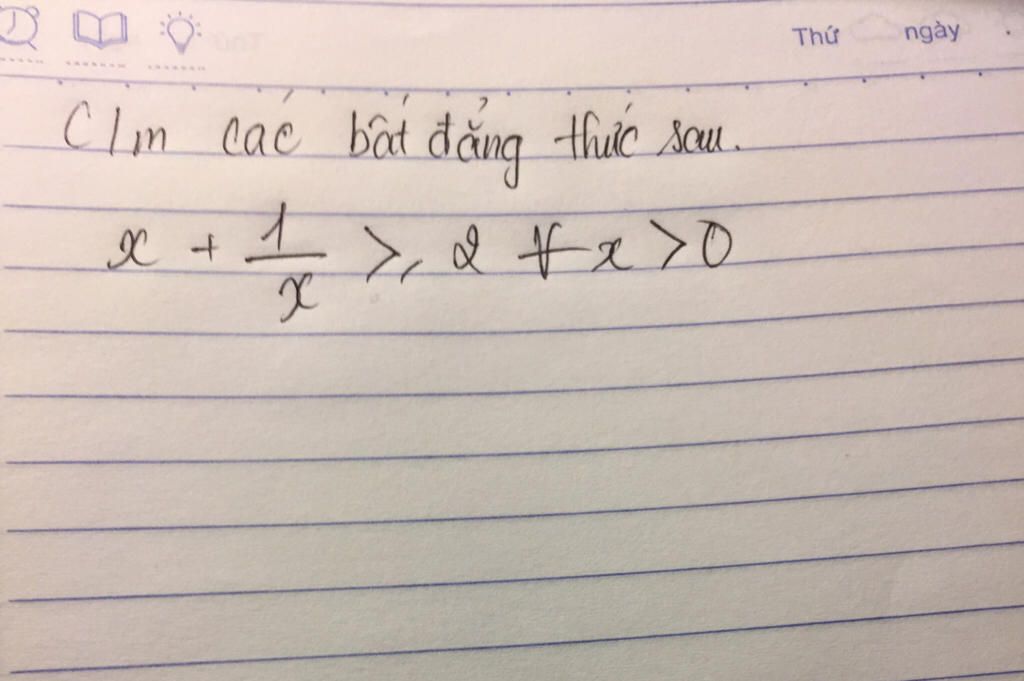 Thứ ngày
C/m các bất đẳng thức sau.
x + 1/x ≥ 2 ∀ x > 0